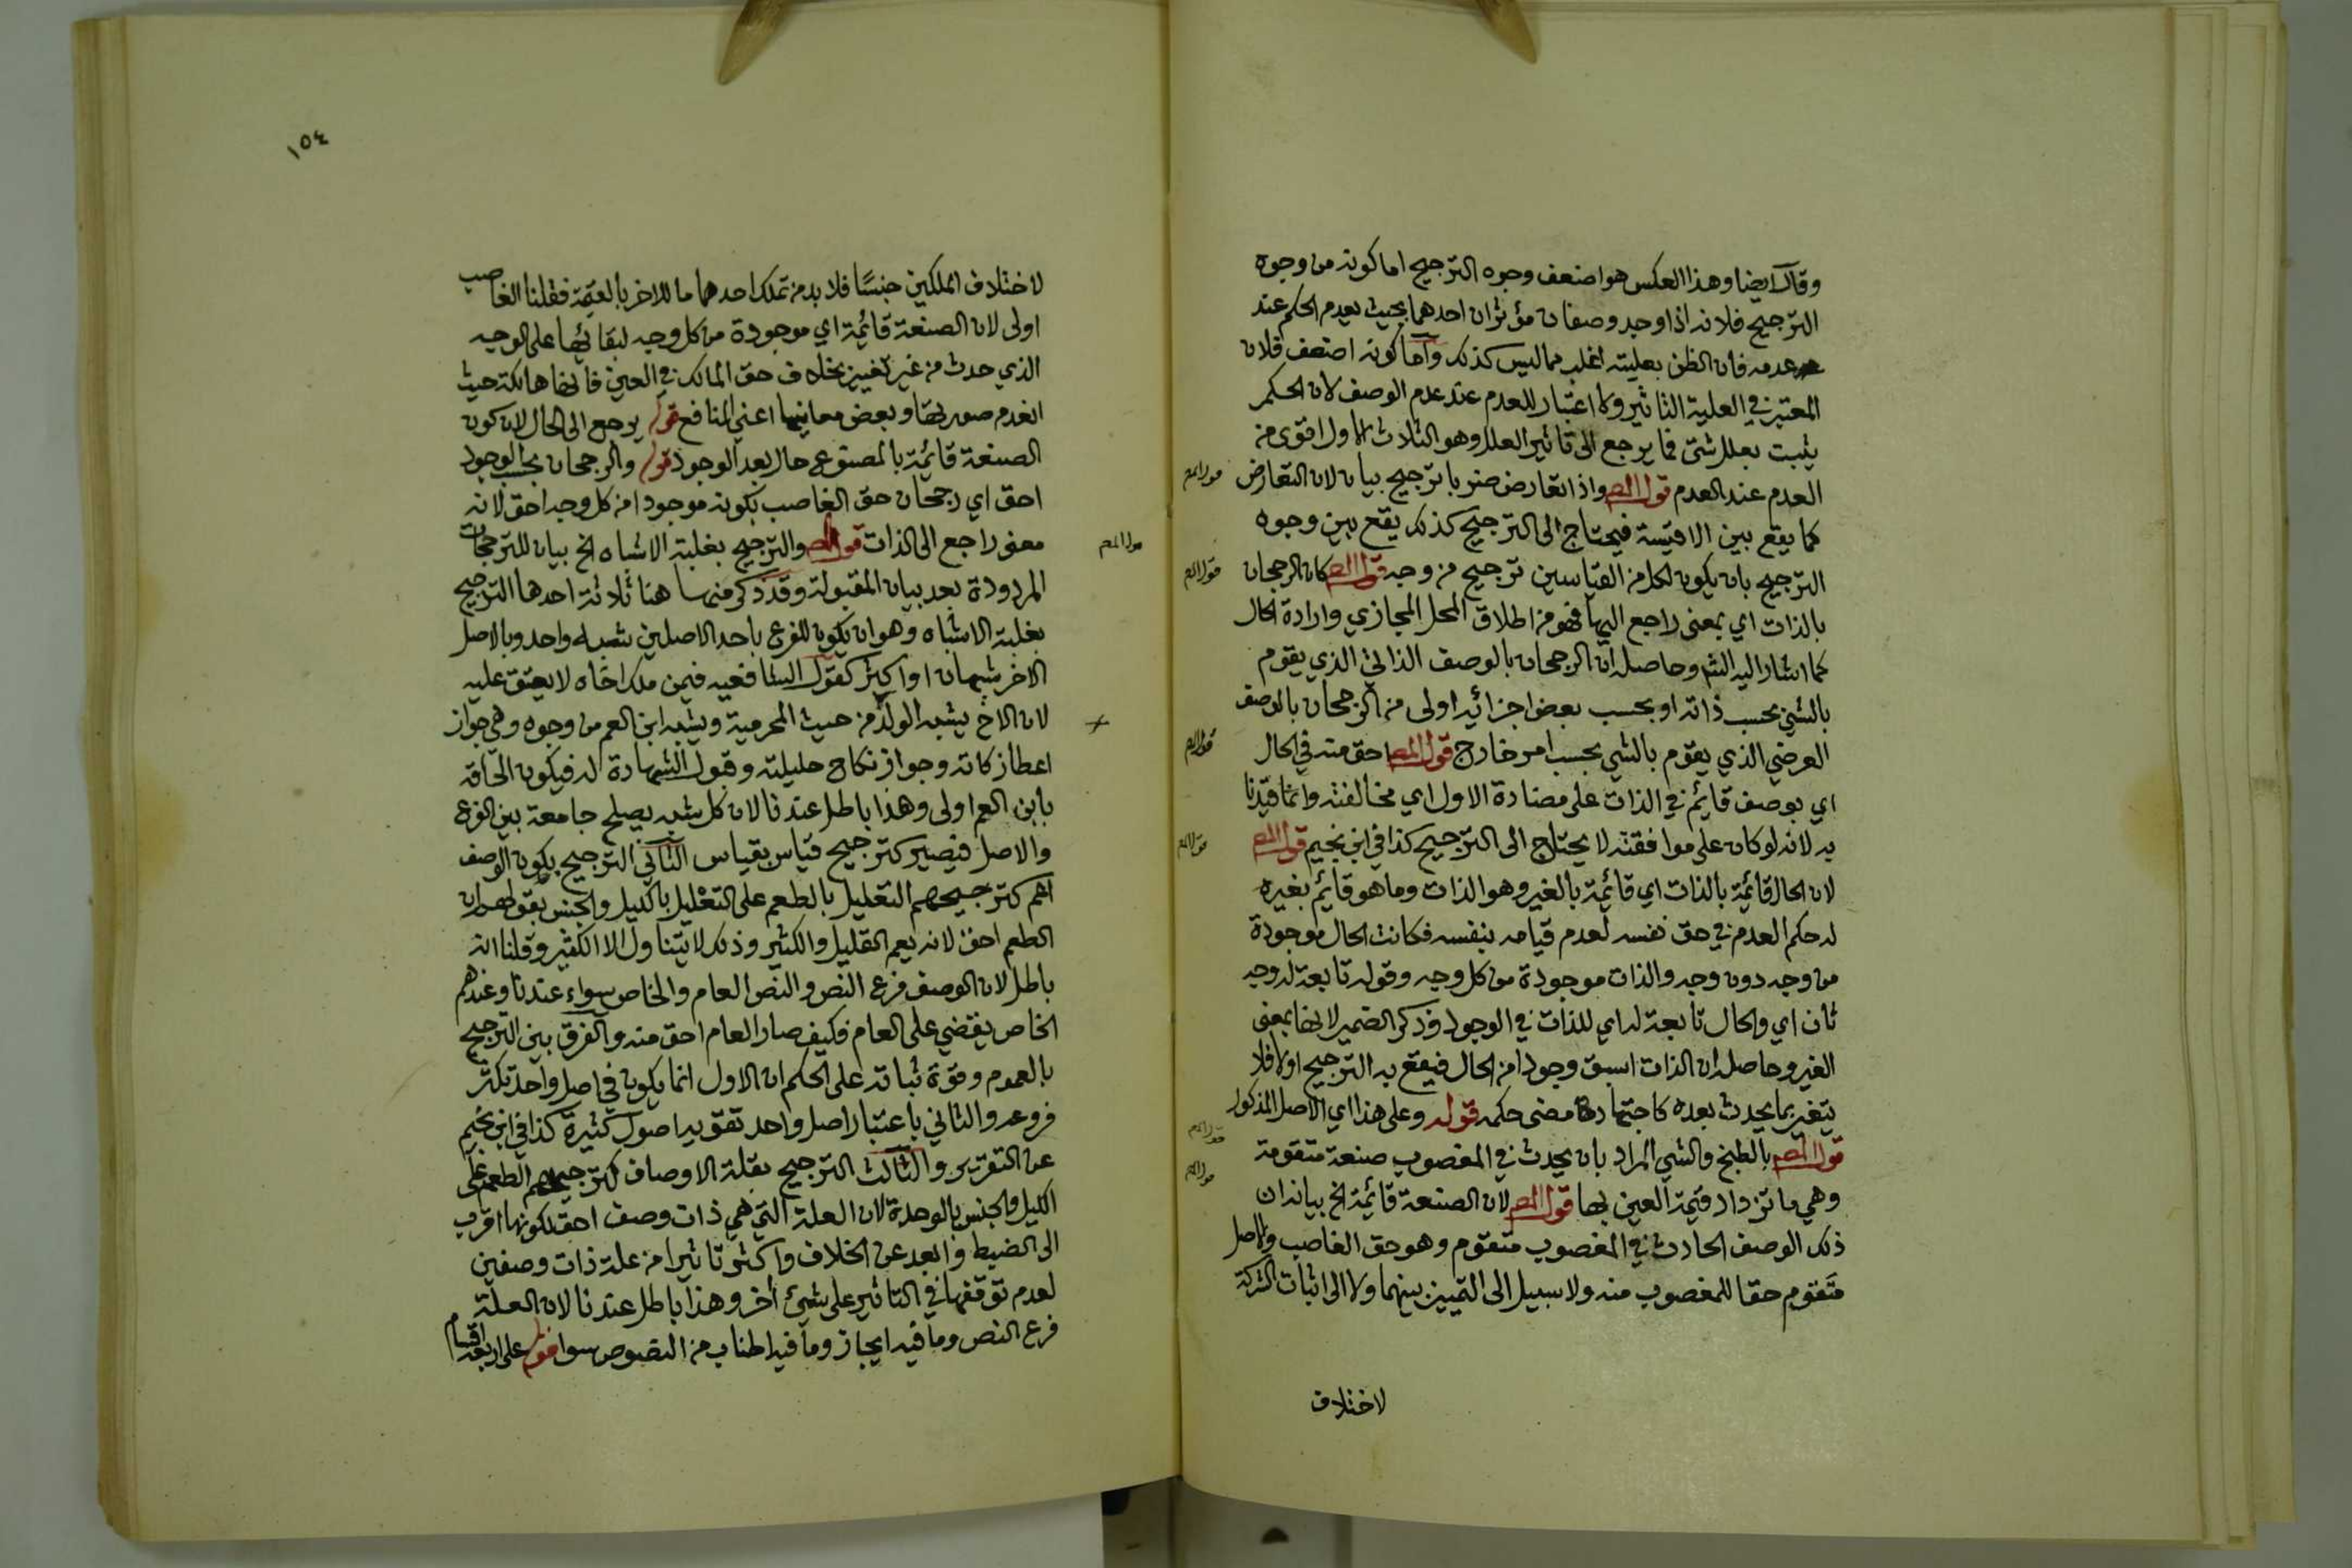 وقال ايضا وهذا العكس هو اضعف وجوه الترجيح اما كونه من وجوه
الترجيح فلانه اذا وجد وصفان مؤثران احدهما بحيث يعدم الحكم عند
عدمه فان الظن بعليته اغلب مما ليس كذلك واما كونه اضعف فلان
المعتبر في العلية التاثير ولا اعتبار للعدم عند عدم الوصف لان الحكم
يثبت بعلل شتى فما يرجع الى تاثير العلل وهو الثلاث الاول اقوى من
العدم عند العدم قول المص واذا تعارض ضربا ترجيح بيان لان التعارض
كما يقع بين الاقيسة فيحتاج الى الترجيح كذلك يقع بين وجوه
الترجيح بان يكون لكل من القياسين ترجيح من وجه قول المص كان الرجحان
بالذات اي بمعنى راجع اليها فهو من اطلاق المحل المجازي وارادة الحال
كما اشار اليه الشم وحاصله ان الرجحان بالوصف الذاتي الذي يقوم
بالشي بحسب ذاته او بحسب بعض اجزائه اولى من الرجحان بالوصف
العرضي الذي يقوم بالشي بحسب امر خارج قول المص احق منه في الحال
اي بوصف قايم في الذات على مضادة الاول اي مخالفته وانما قيدنا
به لانه لو كان على موافقته لا يحتاج الى الترجيح كذا في ابن نجيم قول المص
لان الحال قائمة بالذات اي قائمة بالغير وهو الذات وما هو قايم بغيره
له حكم العدم في حق نفسه لعدم قيامه بنفسه فكانت الحال موجودة
من وجه دون وجه والذات موجودة من كل وجه وقوله تابعة له وجه
ثان اي والحال تابعة له اي للذات في الوجود وذكر الضمير لانها بمعنى
الغير وحاصله ان الذات اسبق وجودا من الحال فيقع به الترجيح اولا فلا
يتغير بما يحدث بعده كاجتهاد مضى حكمه قوله وعلى هذا اي الاصل المذكور
قول المص بالطبخ والشي المراد بان يحدث في المغصوب صنعة متقومة
وهي ما تزداد قيمة العين بها قول المص لان الصنعة قائمة الخ بيانه ان
ذلك الوصف الحادث في المغصوب متقوم وهو حق الغاصب والاصل
متقوم حقا للمغصوب منه ولا سبيل الى التمييز بينهما ولا الى اثبات الشركة
لاختلاف
قول المص
قول المص
قول المص
قول المص
قول المص
قول المص
١٥٤
لاختلاف الملكين جنسًا فلا بد من تملك احدهما ما للاخر بالقيمة فقلنا الغاصب
اولى لان الصنعة قائمة اي موجودة من كل وجه لبقائها على الوجه
الذي حدث من غير تغيير بخلاف حق المالك في العين فانها هالكة حيث
انعدم صورتها وبعض معانيها اعني المنافع قوله يرجع الى الحال لان كون
الصنعة قائمة بالمصنوع حال بعد الوجود قوله والرجحان بحسب الوجود
احق اي رجحان حق الغاصب بكونه موجودا من كل وجه احق لانه
معنى راجع الى الذات قول المص والترجيح بغلبة الاشباه الخ بيان للترجيحات
المردودة بعد بيان المقبولة وقد ذكر منها هنا ثلاثة احدها الترجيح
بغلبة الاشباه وهو ان يكون للفرع باحد الاصلين شبه واحد وبالاصل
الاخر شبهان او اكثر كقول الشافعيه فيمن ملك اخاه لا يعتق عليه
لان الاخ يشبه الولد من حيث المحرمية ويشبه ابن العم من وجوه وهي جواز
اعطا زكاته وجواز نكاح حليلته وقبول الشهادة له فيكون الحاقه
بابن العم اولى وهذا باطل عندنا لان كل شبه يصلح جامعة بين الفرع
والاصل فيصير كترجيح قياس بقياس الثاني الترجيح بكون الوصف
اعم كترجيحهم التعليل بالطعم على التعليل بالكيل والجنس بقولهم ان
الطعم احق لانه يعم القليل والكثير وذلك لا يتناول الا الكثير وقلنا انه
باطل لان الوصف فرع النص والنص العام والخاص سواء عندنا وعندهم
الخاص يقضي على العام فكيف صار العام احق منه والفرق بين الترجيح
بالعموم وقوة ثباته على الحكم ان الاول انما يكون في اصل واحد تكثر
فروعه والثاني باعتبار اصل واحد تقويه اصول كثيرة كذا في ابن نجيم
عن التقرير والثالث الترجيح بقلة الاوصاف كترجيحهم الطعم على
الكيل والجنس بالوحدة لان العلة التي هي ذات وصف احق لكونها اقرب
الى الضبط وابعد عن الخلاف واكثر تاثيرا من علة ذات وصفين
لعدم توقفها في التاثير على شئ اخر وهذا باطل عندنا لان العلة
فرع النص وما فيه ايجاز وما فيه اطناب من النصوص سوا قوله على اربعة اقسام
قول المص